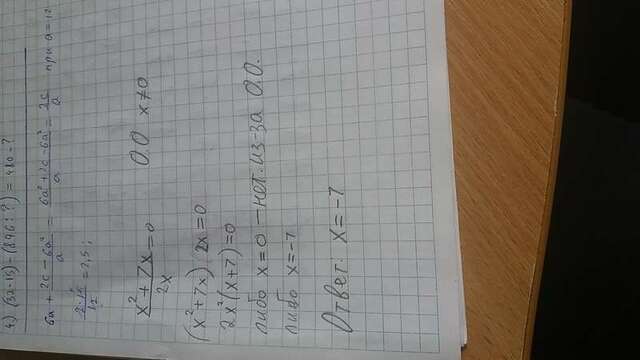 4.) (32·15) - (896 : ?) = 480 - ?
6a + 2c - 6a² / a = 6a² + 2c - 6a² / a = 2c / a при a = 12
2·15 / 12 = 2,5 ;
x² + 7x / 2x = 0 О.О x ≠ 0
(x² + 7x) 2x = 0
2x²(x+7) = 0
либо x = 0 — нет. из-за О.О.
либо x = -7
Ответ: x = -7